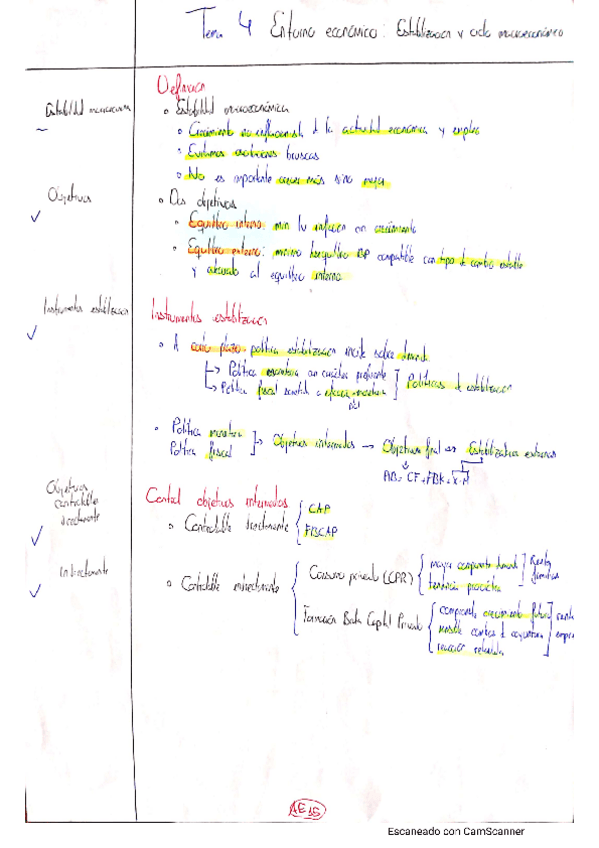 Tema 4 Entorno económico: Estabilización y ciclo macroeconómico
Definición
Estabilidad macroeconómica
Estabilidad macroeconómica
Crecimiento no inflacionista d la actividad económica y empleo
Evitamos oscilaciones bruscas
No es importante crecer más sino mejor
Objetivos
Dos objetivos
Equilibrio interno: min inflación con crecimiento
Equilibrio externo: mínimo desequilibrio BP compatible con tipo de cambio estable
y adecuado al equilibrio interno
Instrumentos estabilización
Instrumentos estabilización
A corto plazo política estabilización incide sobre demanda
→ Política monetaria con carácter preferente
→ Política fiscal sometida a
Políticas de estabilización
Política monetaria
Política fiscal
→ Objetivos intermedios → Objetivo final → Estabilizar
AB = CF + FBK + X-M
Objetivos
controlable
directamente
Control objetivos intermedios
Controlable directamente
CAP
FBCAP
Indirectamente
Controlable indirectamente
Consumo privado (CPR)
mayor componente demanda
tendencia procíclica
Renta
familias
Formación Bruta Capital Privado
componente crecimiento futuro
sensible cambios d coyuntura
reacción retardada
AE 15
Escaneado con CamScanner